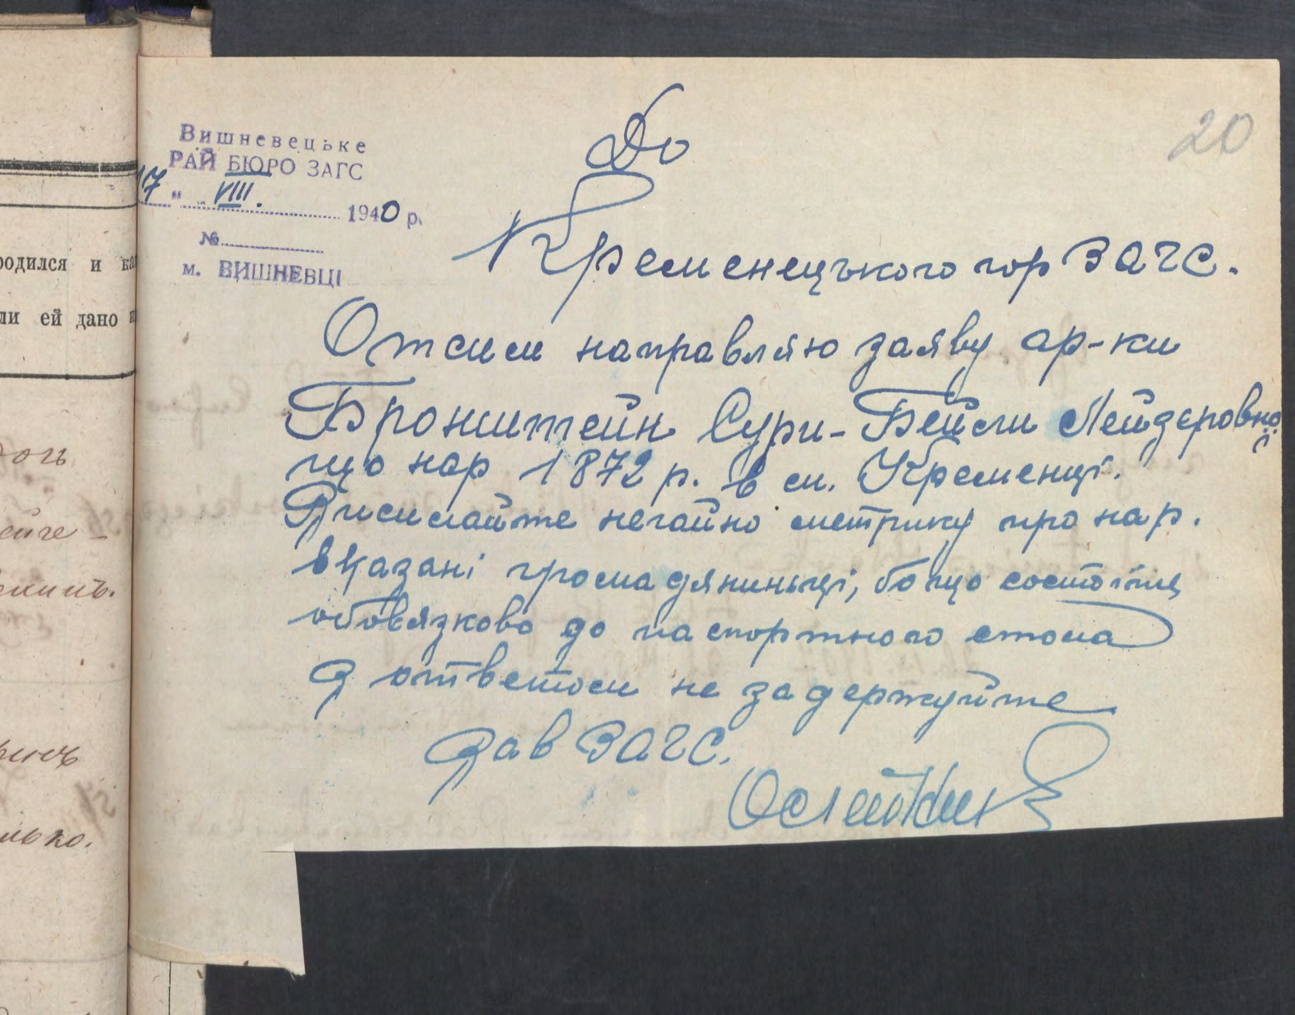 20
Вишневецьке
РАЙ БЮРО ЗАГС
17 " VIII. 1940 р.
№
м. ВИШНЕВЦІ
До
Кременецького гор ЗАГС.
Отсим направляю заяву гр-ки
Бронштейн Сури-Бейли Лейзеровной
що нар 1872 р. в м. Кременці.
Висилайте негайно метрику про нар.
вказані громадяниньці, бо що
обовязково до паспортного стола
З ответом не задержуйте
Зав ЗАГС.
родился и ка
ли ей дано